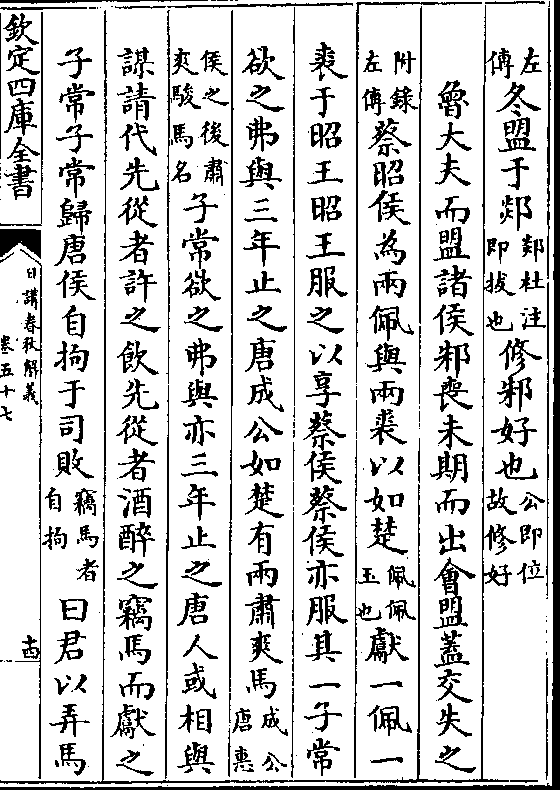 左傳冬盟于郯郯杜注即拔也修邾好也公即位故修好
魯大夫而盟諸侯邾喪未期而出會盟蓋交失之
附錄左傳蔡昭侯為兩佩與兩裘以如楚佩佩玉也獻一佩一
裘于昭王昭王服之以享蔡侯蔡侯亦服其一子常
欲之弗與三年止之唐成公如楚有兩肅爽馬成公唐惠
侯之後肅爽駿馬名子常欲之弗與亦三年止之唐人或相與
謀請代先從者許之飲先從者酒醉之竊馬而獻之
子常子常歸唐侯自拘于司敗竊馬者自拘曰君以弄馬
欽定四庫全書
日講春秋解義
卷五十七
十四